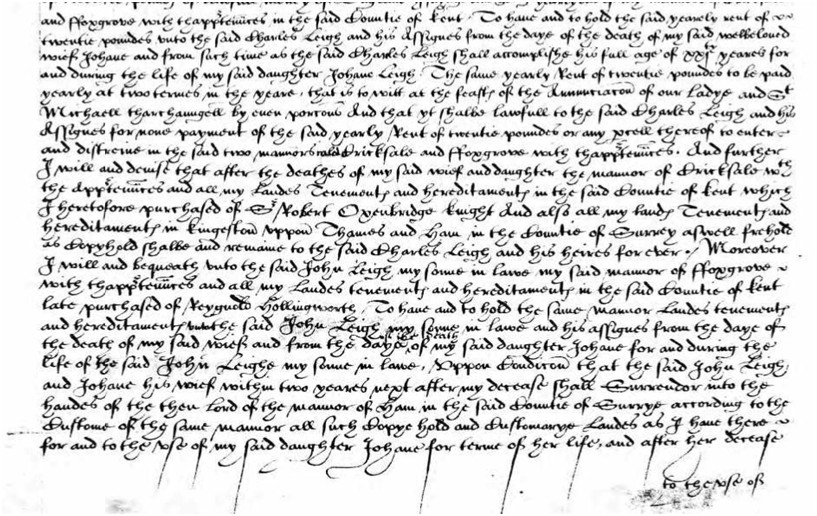 and ffoxgrove with thapptennces in the said Countie of kent. To haue and to hold the said yearely rent of
twentie poundes vnto the said Charles Leigh and his Assignes from the daye of the death of my said welbeloued
wief Johane and from such time as the said Charles Leigh shall accomplishe his full age of xxj yeares for
and during the life of my said daughter Johane Leigh. The same yearly Rent of twentie poundes to be paid
yearly at two termes in the yeare, that is to witt at the feastes of the Annunciacon of our Ladye and St
Michaell tharchaungell by even porcons And that yt shalbe lawfull to the said Charles Leigh and his
Assignes for none payment of the said yearly Rent of twentie poundes or any pcell thereof to enter
and distreine in the said two mannors Bricksale and ffoxgrove with thapptennces. And further
I will and devise that after the deathes of my said wief and daughter the mannor of Bricksale wth
the Apptennces and all my Landes Tenementes and hereditamentes in the said Countie of kent which
I heretofore purchased of Sr Robert Oxenbridge knight And also all my landes Tenementes and
hereditamentes in kingeston vppon Thames and Ham in the Countie of Surrey aswell frehold
as Copyhold shalbe and remaine to the said Charles Leigh and his heires for ever. Moreover
I will and bequeath vnto the said John Leigh my sonne in lawe my said mannor of ffoxgrove
with thapptennces and all my Landes tenementes and hereditamentes in the said Countie of kent
late purchased of Reygnold Hollingworth, To haue and to hold the same mannor Landes tenementes
and hereditamentes vnto the said John Leigh my sonne in lawe and his assignes from the daye of
the death of my said wief and from the daye of the death of my said daughter Johane for and during the
life of the said John Leighe my sonne in lawe, Vppon Condicon that the said John Leigh
and Johane his wief within two yeares next after my decease shall Surrendor into the
handes of the then Lord of the mannor of Ham, in the said Countie of Surrye according to the
Custome of the same mannor all such Coppye hold and Customarye Landes as I haue there
for and to the vse of my said daughter Johane for terme of her life, and after her decease
to the vse of